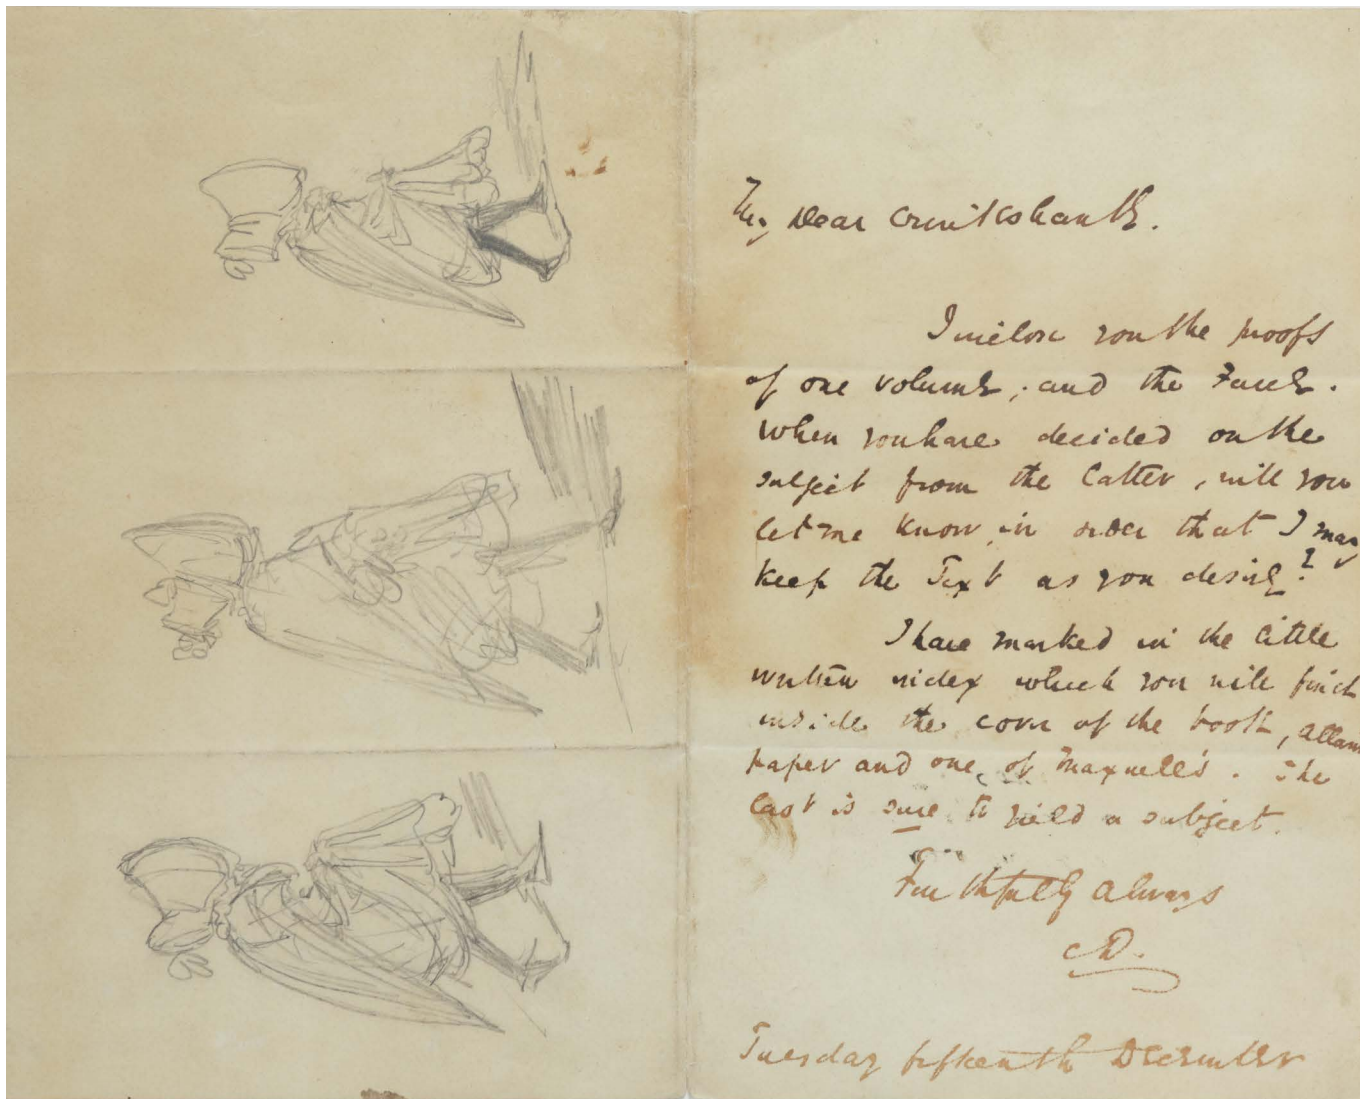 My Dear Cruikshank.
I inclose you the proofs
of one volume, and the Farce.
When you have decided on the
subject from the latter, will you
let me know, in order that I may
keep the Text as you desire?
I have marked in the little
written index which you will find
inside the cover of the book,
paper and one of Maxwell's. The
last is sure to yield a subject.
Faithfully always
CD.
Tuesday fifteenth December